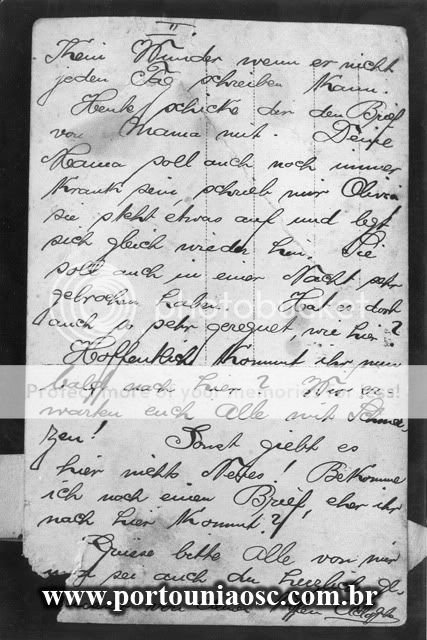 II.
Kein Wunder wenn er nicht
jeden Tag schreiben kann.
Heute schicke dir den Brief
von Mama mit. Deine
Mama soll auch noch immer
krank sein, schrieb mir Olivia
sie steht etwas auf und legt
sich gleich wieder hin. Sie
soll auch in einer Nacht sehr
gebrochen haben. Hat es dort
auch so sehr geregnet, wie hier?
Hoffentlich kommt ihr nun
bald nach hier?
photobucket
Protect more of your memories for less!
warten euch Alle mit Schmer
zen! Sonst giebt es
hier nichts Neues! Bekomme
ich noch einen Brief eher ihr
nach hier kommt?!
Grüsse bitte Alle von mir
sei auch du
www.portouniaosc.com